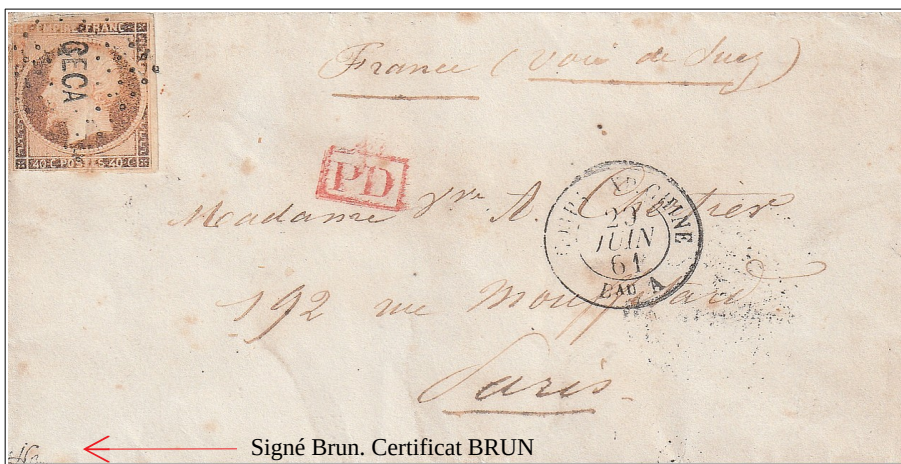 EMPIRE FRANC
CECA
40 C POSTES 40 C
France (Voie de Suez)
PD
Madame Vve A.
23
JUIN
61
BAU A
192 rue Mouffetard
Paris
Signé Brun. Certificat BRUN